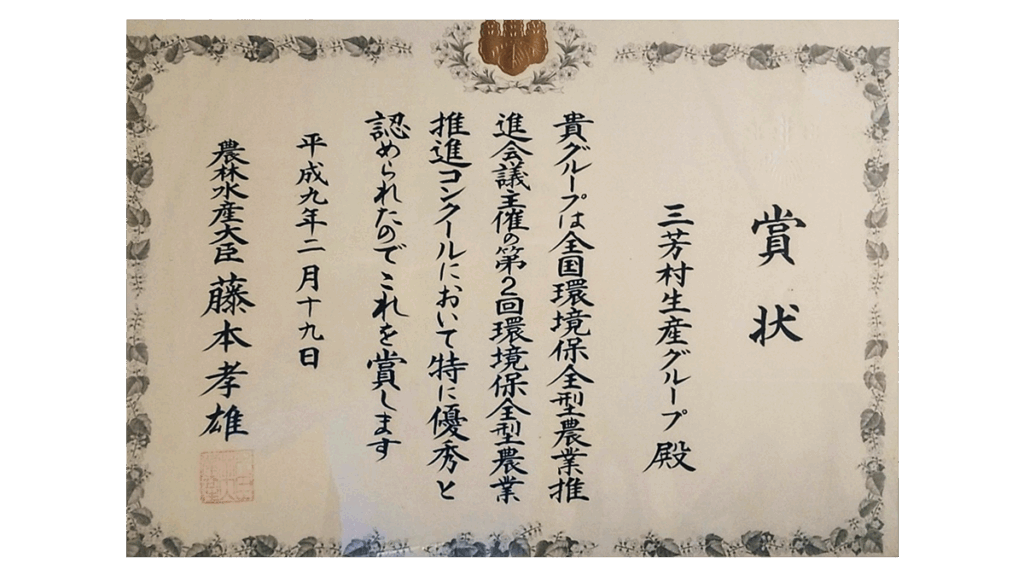 賞状
三芳村生産グループ 殿
貴グループは全国環境保全型農業推
進会議主催の第2回環境保全型農業
推進コンクールにおいて特に優秀と
認められたのでこれを賞します
平成九年二月十九日
農林水産大臣 藤本孝雄